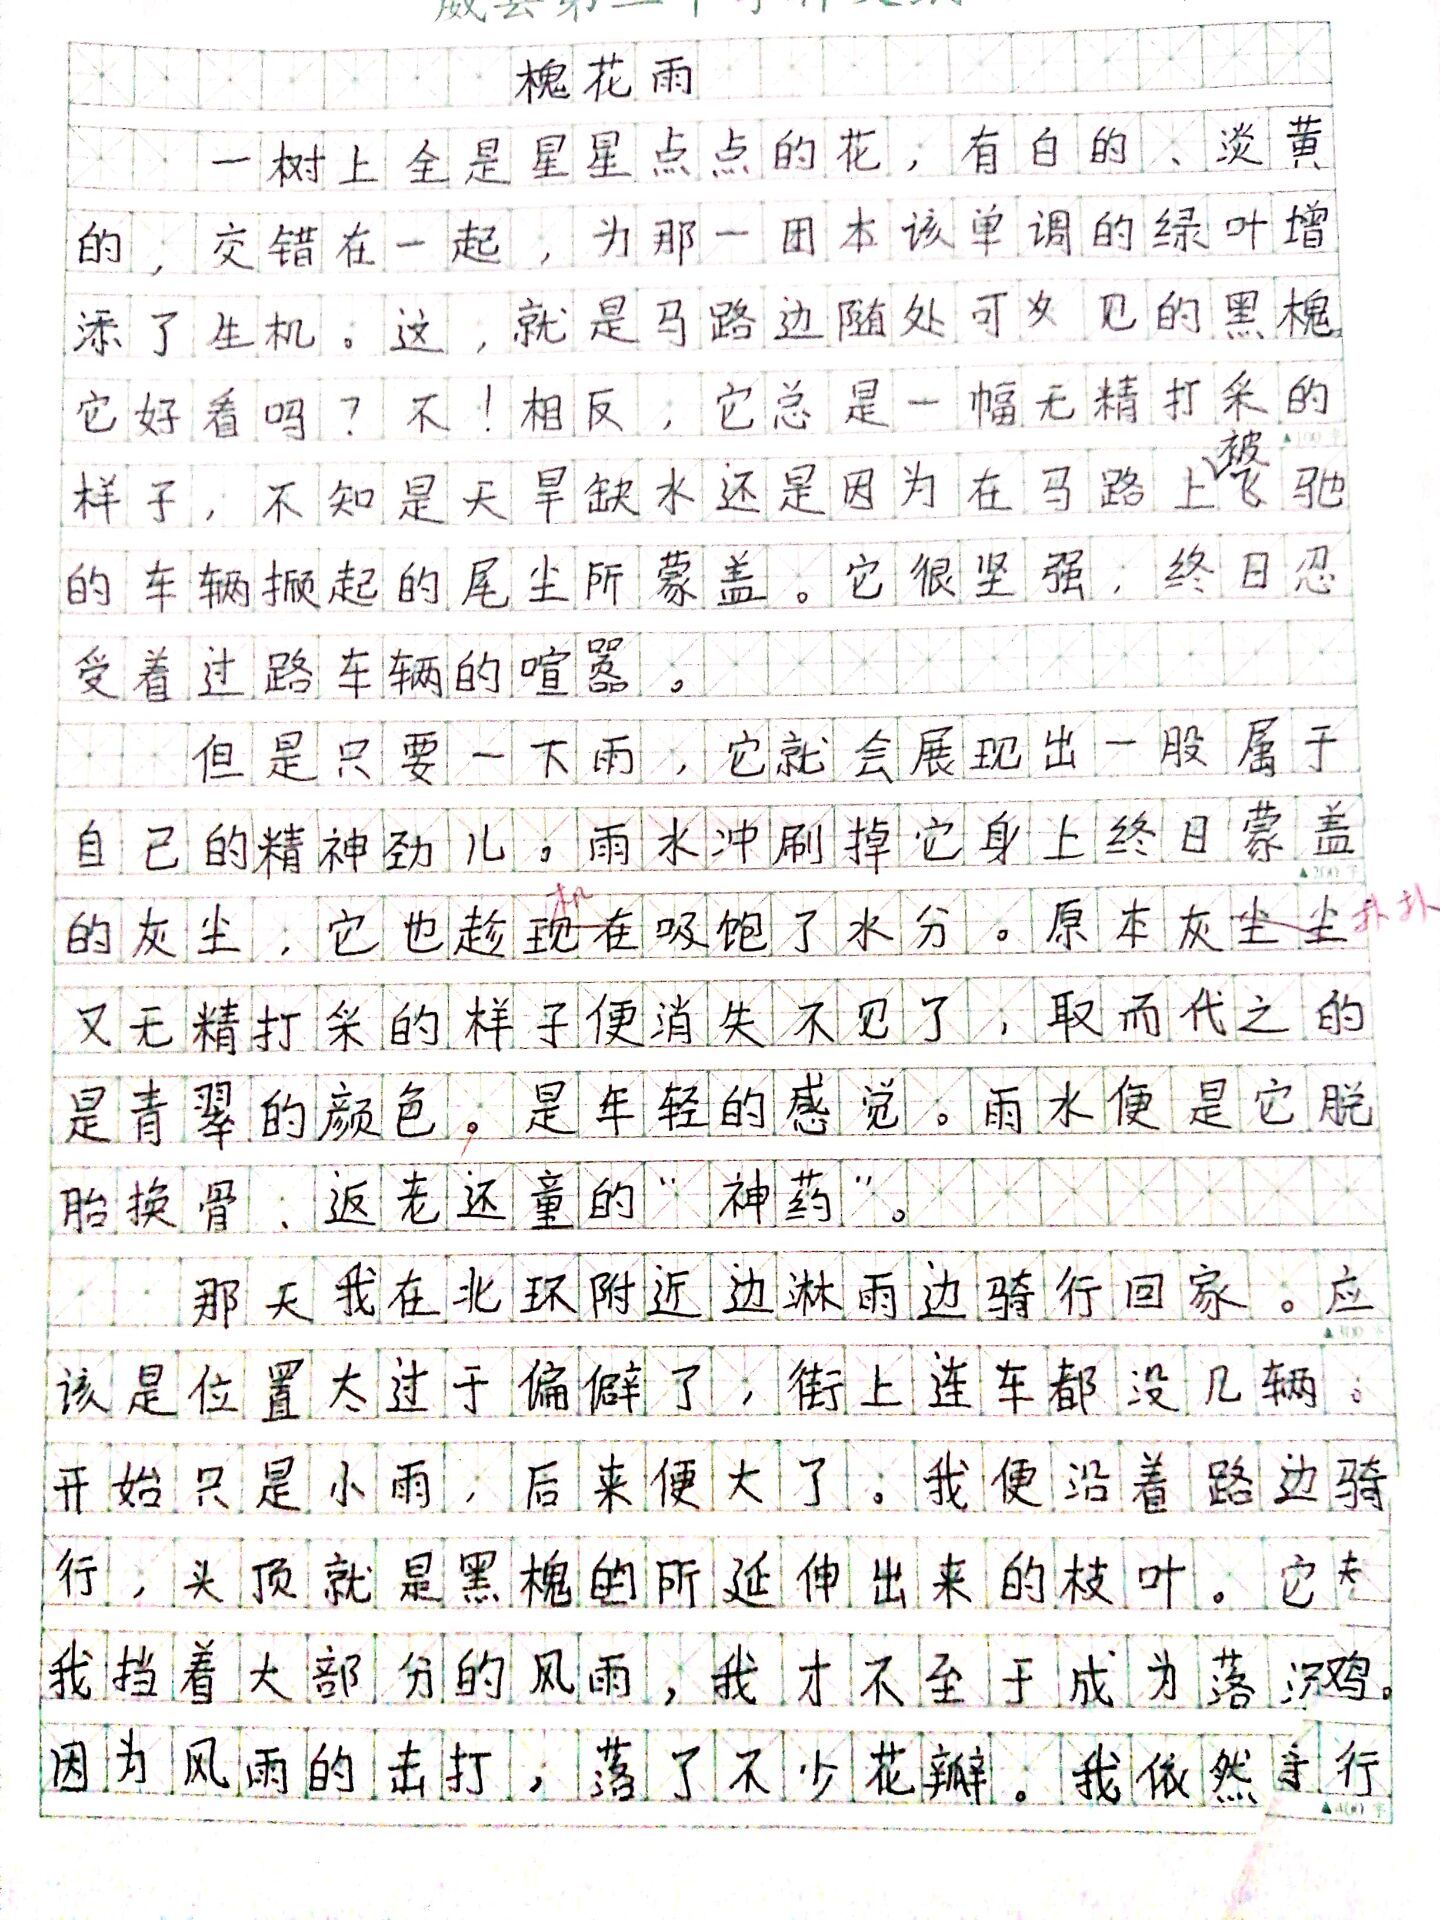 槐花雨
一树上全是星星点点的花，有白的、淡黄
的，交错在一起，为那一团本该单调的绿叶增
添了生机。这，就是马路边随处可见的黑槐。
它好看吗？不！相反，它总是一幅无精打采的
样子，不知是天旱缺水还是因为在马路上被飞驰
的车辆掀起的尾尘所蒙盖。它很坚强，终日忍
受着过路车辆的喧嚣。
但是只要一下雨，它就会展现出一股属于
自己的精神劲儿。雨水冲刷掉它身上终日蒙盖
机
的灰尘，它也趁现在吸饱了水分。原本灰尘尘扑扑
又无精打采的样子便消失不见了，取而代之的
是青翠的颜色。是年轻的感觉。雨水便是它脱
胎换骨、返老还童的“神药”。
那天我在北环附近边淋雨边骑行回家。应
该是位置太过于偏僻了，街上连车都没几辆。
开始只是小雨，后来便大了。我便沿着路边骑
行，头顶就是黑槐的所延伸出来的枝叶。它
我挡着大部分的风雨，我才不至于成为落汤鸡。
因为风雨的击打，落了不少花瓣。我依然 行